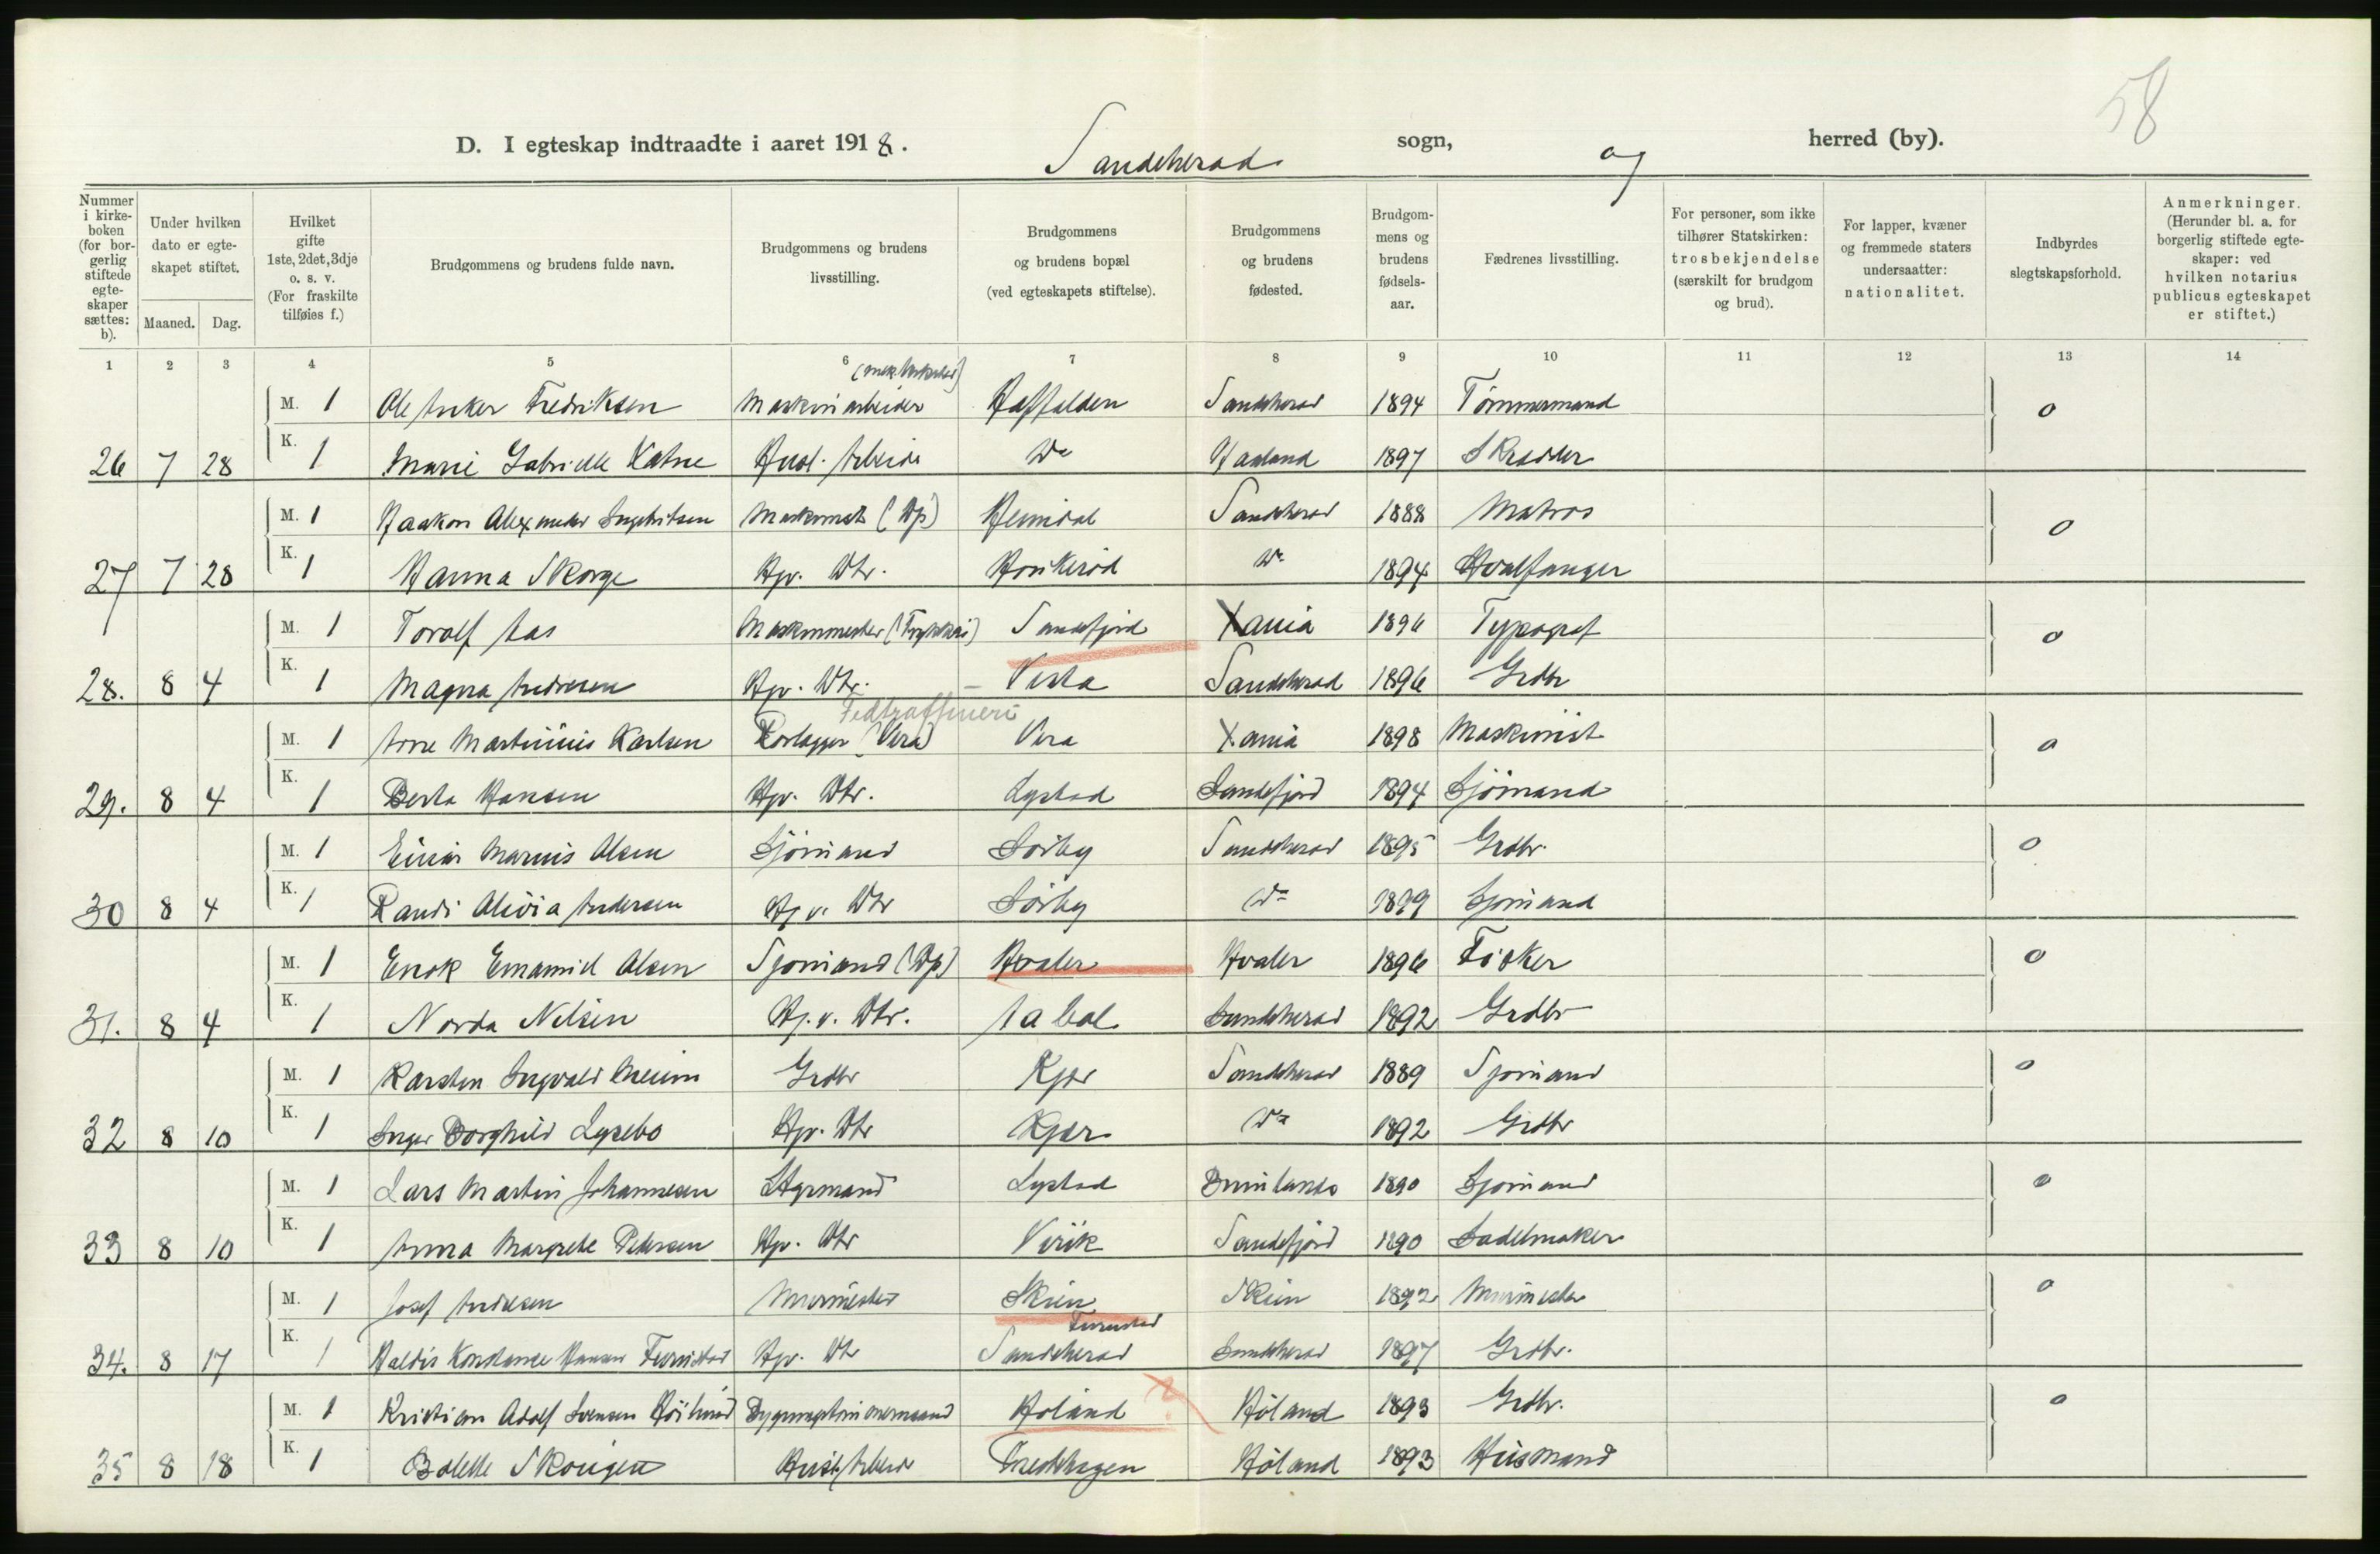 58
D. I egteskap indtraadte i aaret 1918. Sandeherad sogn, og herred (by).
Nummer i kirkeboken (for borgerlig stiftede egteskaper sættes: b).
Under hvilken dato er egteskapet stiftet.
Maaned. Dag.
Hvilket gifte 1ste, 2det, 3dje o. s. v. (For fraskilte tilføies f.)
Brudgommens og brudens fulde navn.
Brudgommens og brudens livsstilling.
Brudgommens og brudens bopæl (ved egteskapets stiftelse).
Brudgommens og brudens fødested.
Brudgommens og brudens fødselsaar.
Fædrenes livsstilling.
For personer, som ikke tilhører Statskirken: trosbekjendelse (særskilt for brudgom og brud).
For lapper, kvæner og fremmede staters undersaatter: nationalitet.
Indbyrdes slegtskapsforhold.
Anmerkninger. (Herunder bl. a. for borgerlig stiftede egteskaper: ved hvilken notarius publicus egteskapet er stiftet.)
1 2 3 4 5 6 7 8 9 10 11 12 13 14
M. 1 Ole Anker Fredriksen Maskinarbeider Sandeherad 1894 Tömmermand 0
26 7 28 K. 1 Marie Gabrielle Husl. Arbeide Do 1897 Skrædder
M. 1 Haakon Alexander Ingebritsen Maskinist (Dp) Heimdal Sandeherad 1888 Matros 0
27 7 28 K. 1 Hanna Skorge Hjv. Dtr. Do 1894 Hvalfanger
M. 1 Toralf Aas Maskinmester Sandefjord Xania 1896 Typograf 0
28. 8 4 K. 1 Magna Andresen Hjv. Dtr. Vesta Sandeherad 1896 Grdbr
Fedtraffineri
M. 1 Arne Martinius Karlsen (Vera) Vera Xania 1898 Maskinist 0
29. 8 4 K. 1 Berta Hansen Hjv. Dtr. Lystad Sandefjord 1894 Sjömand
M. 1 Einar Marius Olsen Sjömand Sörby Sandeherad 1895 Grdbr. 0
30 8 4 K. 1 Randi Alivia Andersen Hjv. Dtr Sörby Do 1899 Sjömand
M. 1 Enok Emanuel Olsen Sjömand (Dp) Hvaler Hvaler 1896 Fisker 0
31. 8 4 K. 1 Norda Nilsen Hj.v. Dtr. Sandeherad 1892 Grdbr
M. 1 Karsten Ingvald Grdbr Kjær Sandeherad 1889 Sjömand 0
32 8 10 K. 1 Inger Borghild Lysebo Hjv. Dtr Kjær Do 1892 Grdbr
M. 1 Lars Martin Johannesen Styrmand Lystad 1890 Sjömand 0
33 8 10 K. 1 Anna Margrete Pedersen Hjv. Dtr Virik Sandefjord 1890 Sadelmaker
M. 1 Josef Andresen Murmester Skien Skien 1892 Murmester 0
Furustad
34. 8 17 K. 1 Valdis Konstanse Hansen Furustad Hjv. Dtr Sandeherad Sandeherad 1897 Grdbr.
M. 1 Kristian Adolf Svensen Bygningstömmermand Höland ? Höland 1893 Grdbr. 0
35 8 18 K. 1 Bolette Skougen Husl. Arbeide Höland 1893 Husmand